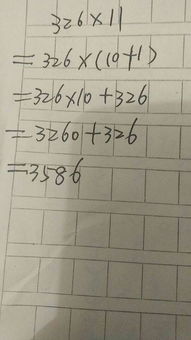 326×11
=326×(10+1)
=326×10+326
=3260+326
=3586